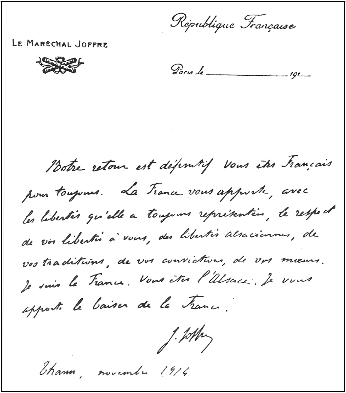 République Française
LE MARÉCHAL JOFFRE
Paris le 191
Notre retour est définitif vous êtes Français
pour toujours. La France vous apporte, avec
les libertés qu'elle a toujours représentées, le respect
de vos libertés à vous, des libertés alsaciennes, de
vos traditions, de vos convictions, de vos mœurs.
Je suis la France. Vous êtes l'Alsace. Je vous
apporte le baiser de la France.
J. Joffre
Thann, novembre 1914